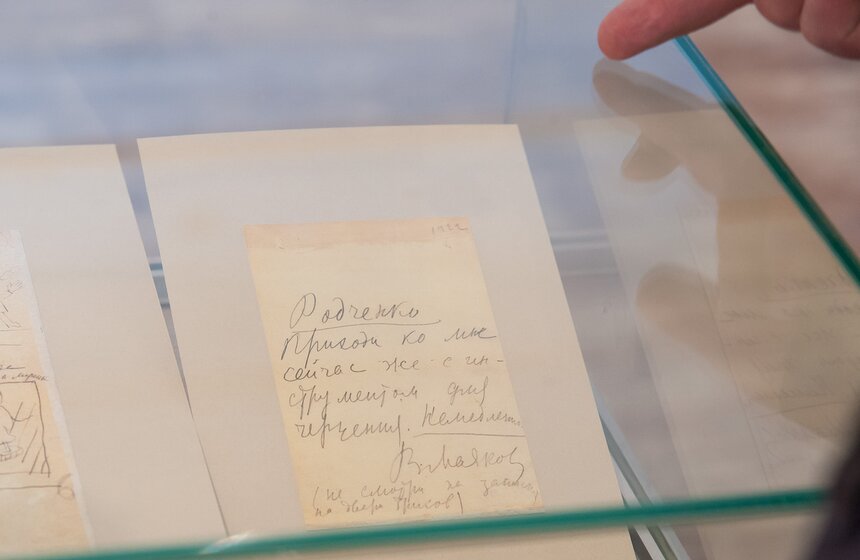 1922
Родченко
Приходи ко мне
сейчас же с ин-
струментом для
черчения. Немедленно.
В Маяков
(не смотри на записку
на двери